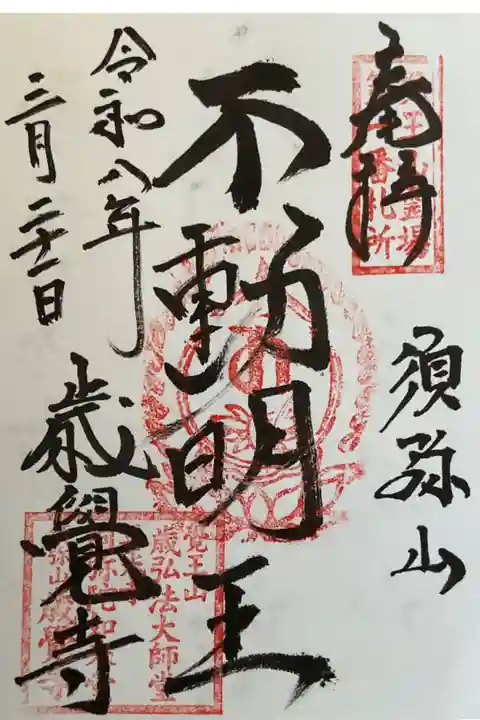 奉拝
須弥山
不動明王
令和八年
三月二十一日
歳覺寺
霊場
番札所
覚王山
歳弘法大師堂